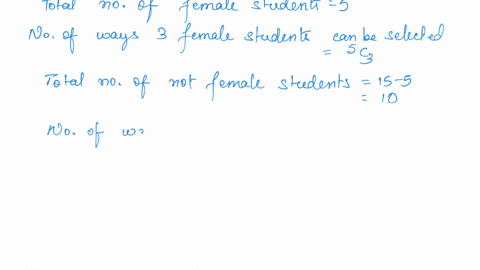 Total no. of female students = 5
No. of ways 3 female students can be selected
= ⁵C₃
Total no. of not female students = 15-5
= 10
No. of w